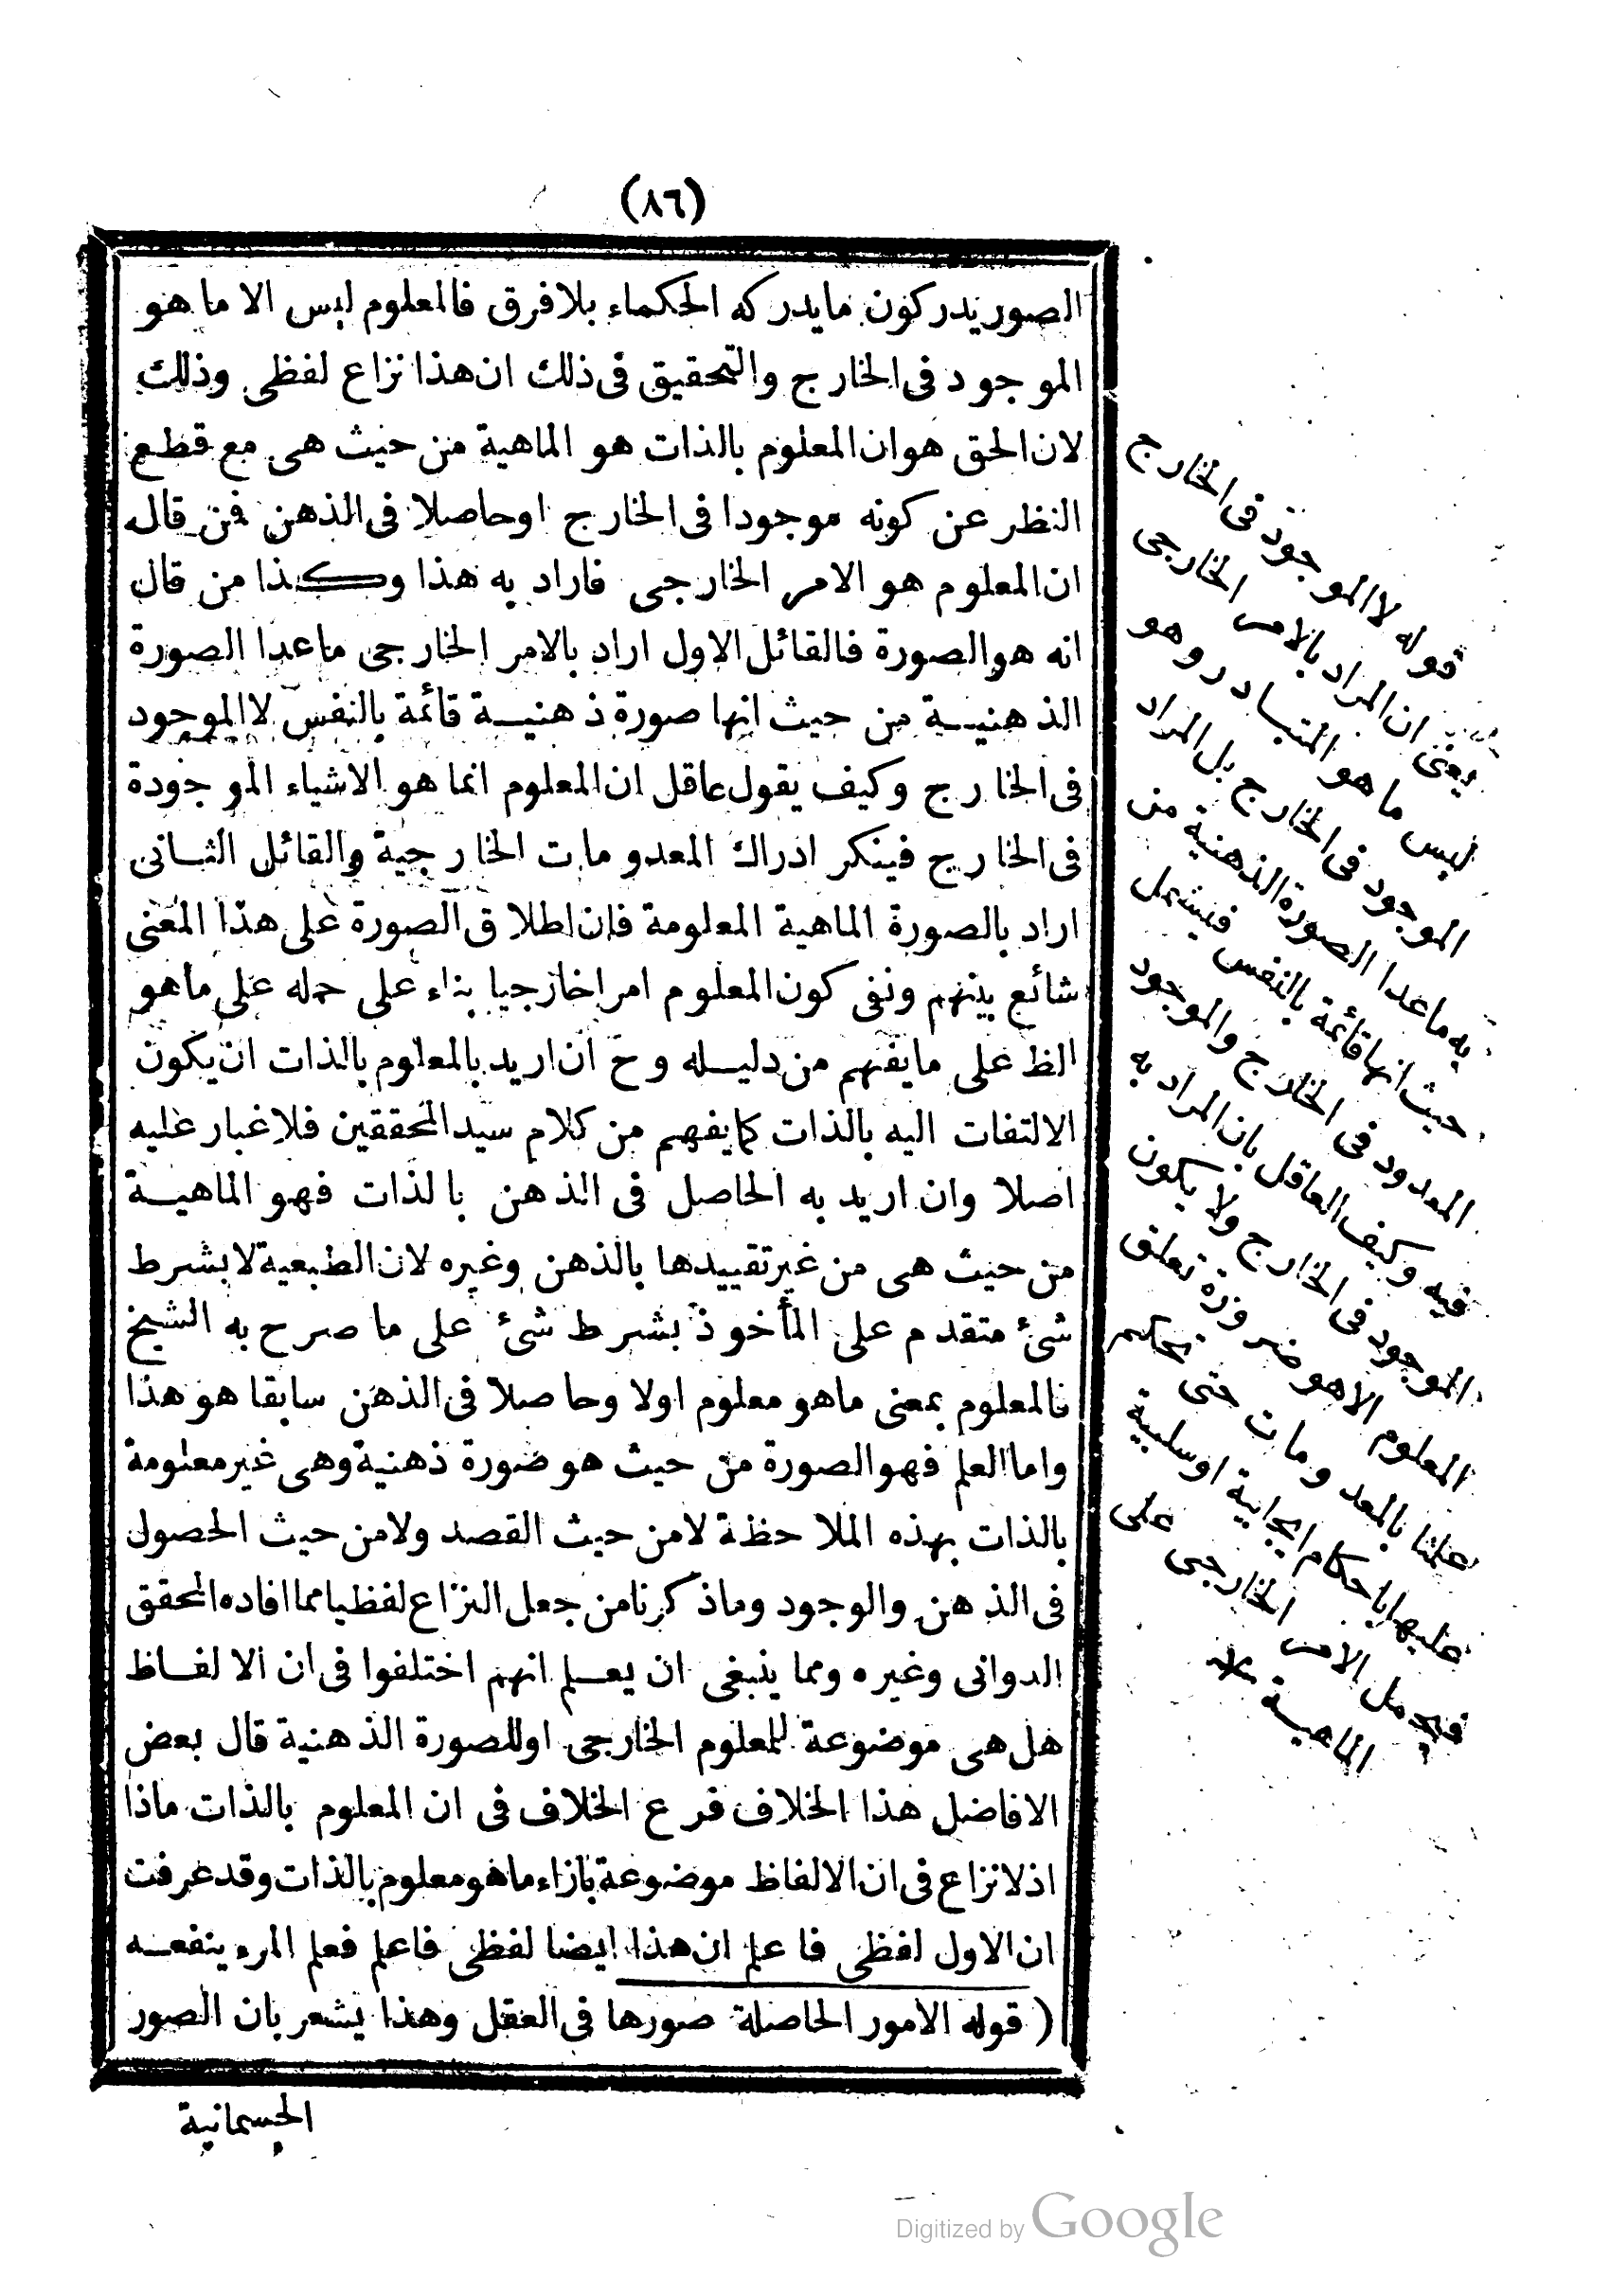 (٨٦)
الصور يدركون ما يدركه الحكماء بلا فرق فالمعلوم ليس الا ما هو
الموجود فى الخارج والتحقيق فى ذلك ان هذا نزاع لفظى وذلك
لان الحق هو ان المعلوم بالذات هو الماهية من حيث هى مع قطع
النظر عن كونه موجودا فى الخارج اوحاصلا فى الذهن فمن قال
ان المعلوم هو الامر الخارجى فاراد به هذا وكذا من قال
انه هو الصورة فالقائل الاول اراد بالامر الخارجى ماعدا الصورة
الذهنية من حيث انها صورة ذهنية قائمة بالنفس لا الموجود
فى الخارج وكيف يقول عاقل ان المعلوم انما هو الاشياء الموجودة
فى الخارج فينكر ادراك المعدومات الخارجية والقائل الثانى
اراد بالصورة الماهية المعلومة فان اطلاق الصورة على هذا المعنى
شائع بينهم ونفى كون المعلوم امرا خارجيا بناء على حمله على ماهو
الظ على مايفهم من دليله وح ان اريد بالمعلوم بالذات ان يكون
الالتفات اليه بالذات كما يفهم من كلام سيد المحققين فلا غبار عليه
اصلا وان اريد به الحاصل فى الذهن بالذات فهو الماهية
من حيث هى من غير تقييدها بالذهن وغيره لان الطبعية لا بشرط
شئ متقدم على المأخوذ بشرط شئ على ما صرح به الشيخ
فالمعلوم بمعنى ماهو معلوم اولا وحاصلا فى الذهن سابقا هو هذا
واما العلم فهو الصورة من حيث هو صورة ذهنية وهى غير معلومة
بالذات بهذه الملاحظة لامن حيث القصد ولامن حيث الحصول
فى الذهن والوجود وماذكرنا من جعل النزاع لفظيا مما افاده المحقق
الدوانى وغيره ومما ينبغى ان يعلم انهم اختلفوا فى ان الالفاظ
هل هى موضوعة للمعلوم الخارجى اوللصورة الذهنية قال بعض
الافاضل هذا الخلاف فرع الخلاف فى ان المعلوم بالذات ماذا
اذ لا نزاع فى ان الالفاظ موضوعة بازاء ماهو معلوم بالذات وقد عرفت
ان الاول لفظى فاعلم ان هذا ايضا لفظى فاعلم فعلم المرء ينفعه
( قوله الامور الحاصلة صورها فى العقل وهذا يشعر بان الصور
الجسمانية
قوله لا الموجود فى الخارج
يعنى ان المراد بالامر الخارجى
ليس ما هو المتبادر وهو
الموجود فى الخارج بل المراد
به ماعدا الصورة الذهنية من
حيث انها قائمة بالنفس فيشمل
المعدود فى الخارج والموجود
فيه وكيف العاقل بان المراد به
الموجود فى الخارج ولا يكون
المعلوم الا هو ضرورة تعلق
علمنا بالمعدومات حتى نحكم
عليها باحكام ايجابية اوسلبية
فيحمل الامر الخارجى على
الماهية
Digitized by Google